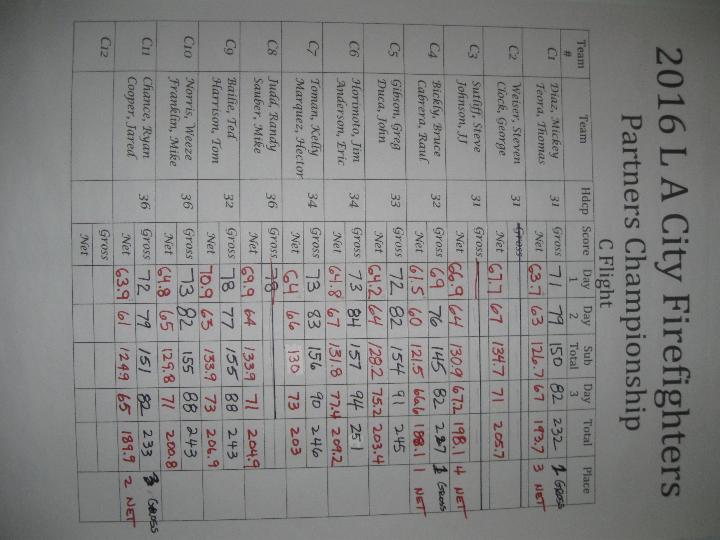 2016 L A City Firefighters
Partners Championship
C Flight
Team # Team Hdcp Score Day 1 Day 2 Sub Total Day 3 Total Place
C1 Diaz, Mickey 31 Gross 71 79 150 82 232 2 GROSS
Teora, Thomas Net 63.7 63 126.7 67 193.7 3 NET
C2 Weiser, Steven 31 Gross
Clock, George Net 67.7 67 134.7 71 205.7
C3 Sutliff, Steve 31 Gross
Johnson, JJ Net 66.9 64 130.9 67.2 198.1 4 NET
C4 Bickly, Bruce 32 Gross 69 76 145 82 227 1 GROSS
Cabrera, Raul Net 61.5 60 121.5 66.6 188.1 1 NET
C5 Gibson, Greg 33 Gross 72 82 154 91 245
Duca, John Net 64.2 64 128.2 75.2 203.4
C6 Horimoto, Jim 34 Gross 73 84 157 94 251
Anderson, Eric Net 64.8 67 131.8 77.4 209.2
C7 Toman, Kelly 34 Gross 73 83 156 90 246
Marquez, Hector Net 64 66 130 73 203
C8 Judd, Randy 36 Gross 78
Sauber, Mike Net 69.9 64 133.9 71 204.9
C9 Bailie, Ted 32 Gross 78 77 155 88 243
Harrison, Tom Net 70.9 63 133.9 73 206.9
C10 Norris, Weeze 36 Gross 73 82 155 88 243
Franklin, Mike Net 64.8 65 129.8 71 200.8
C11 Chance, Ryan 36 Gross 72 79 151 82 233 3 GROSS
Cooper, Jared Net 63.9 61 124.9 65 189.9 2 NET
C12 Gross
Net